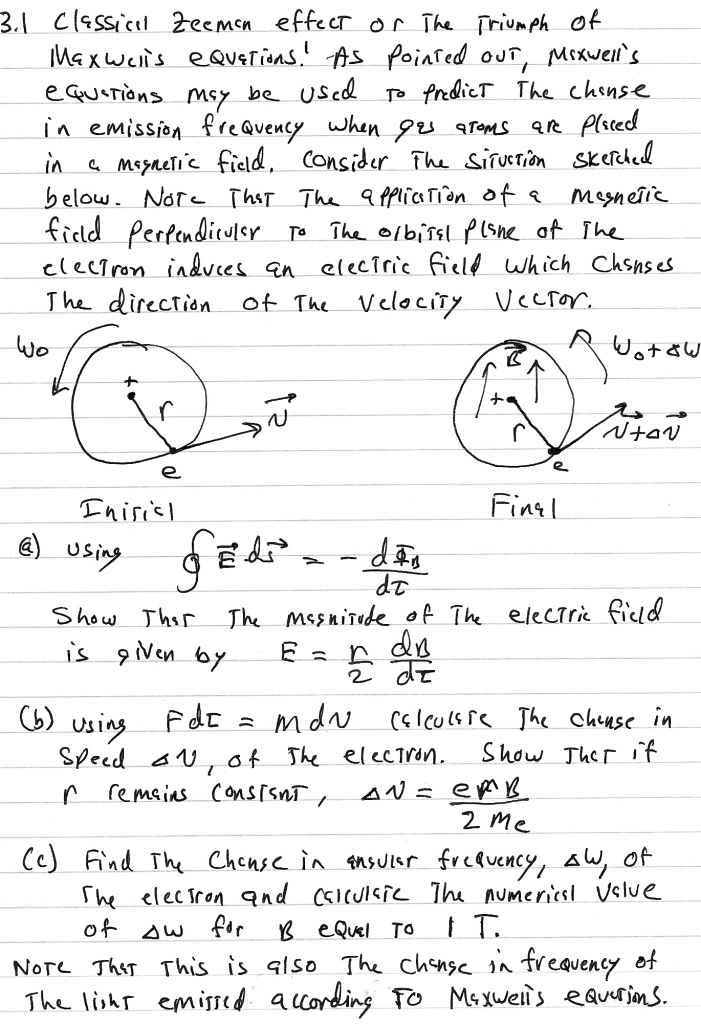 3.1 Classical Zeeman effect or The Triumph of
Maxwell's equations! As pointed out, Maxwell's
equations may be used to predict the change
in emission frequency when gas atoms are placed
in a magnetic field, consider the situation sketched
below. Note that the application of a magnetic
field perpendicular to the orbital plane of the
electron induces an electric field which changes
the direction of the velocity vector.
ω₀ + r v⃗ e
B⃗ + r ω₀+Δω v⃗+Δv⃗ e
Initial Final
(a) using ∮ E⃗ ds⃗ = - dΦ_B/dt
Show that the magnitude of the electric field
is given by E = r/2 dB/dt
(b) using Fdt = mdv calculate the change in
speed Δv, of the electron. Show that if
r remains constant, Δv = erB/2me
(c) Find the change in angular frequency, Δω, of
the electron and calculate the numerical value
of Δω for B equal to 1 T.
Note that this is also the change in frequency of
the light emitted according to Maxwell's equations.